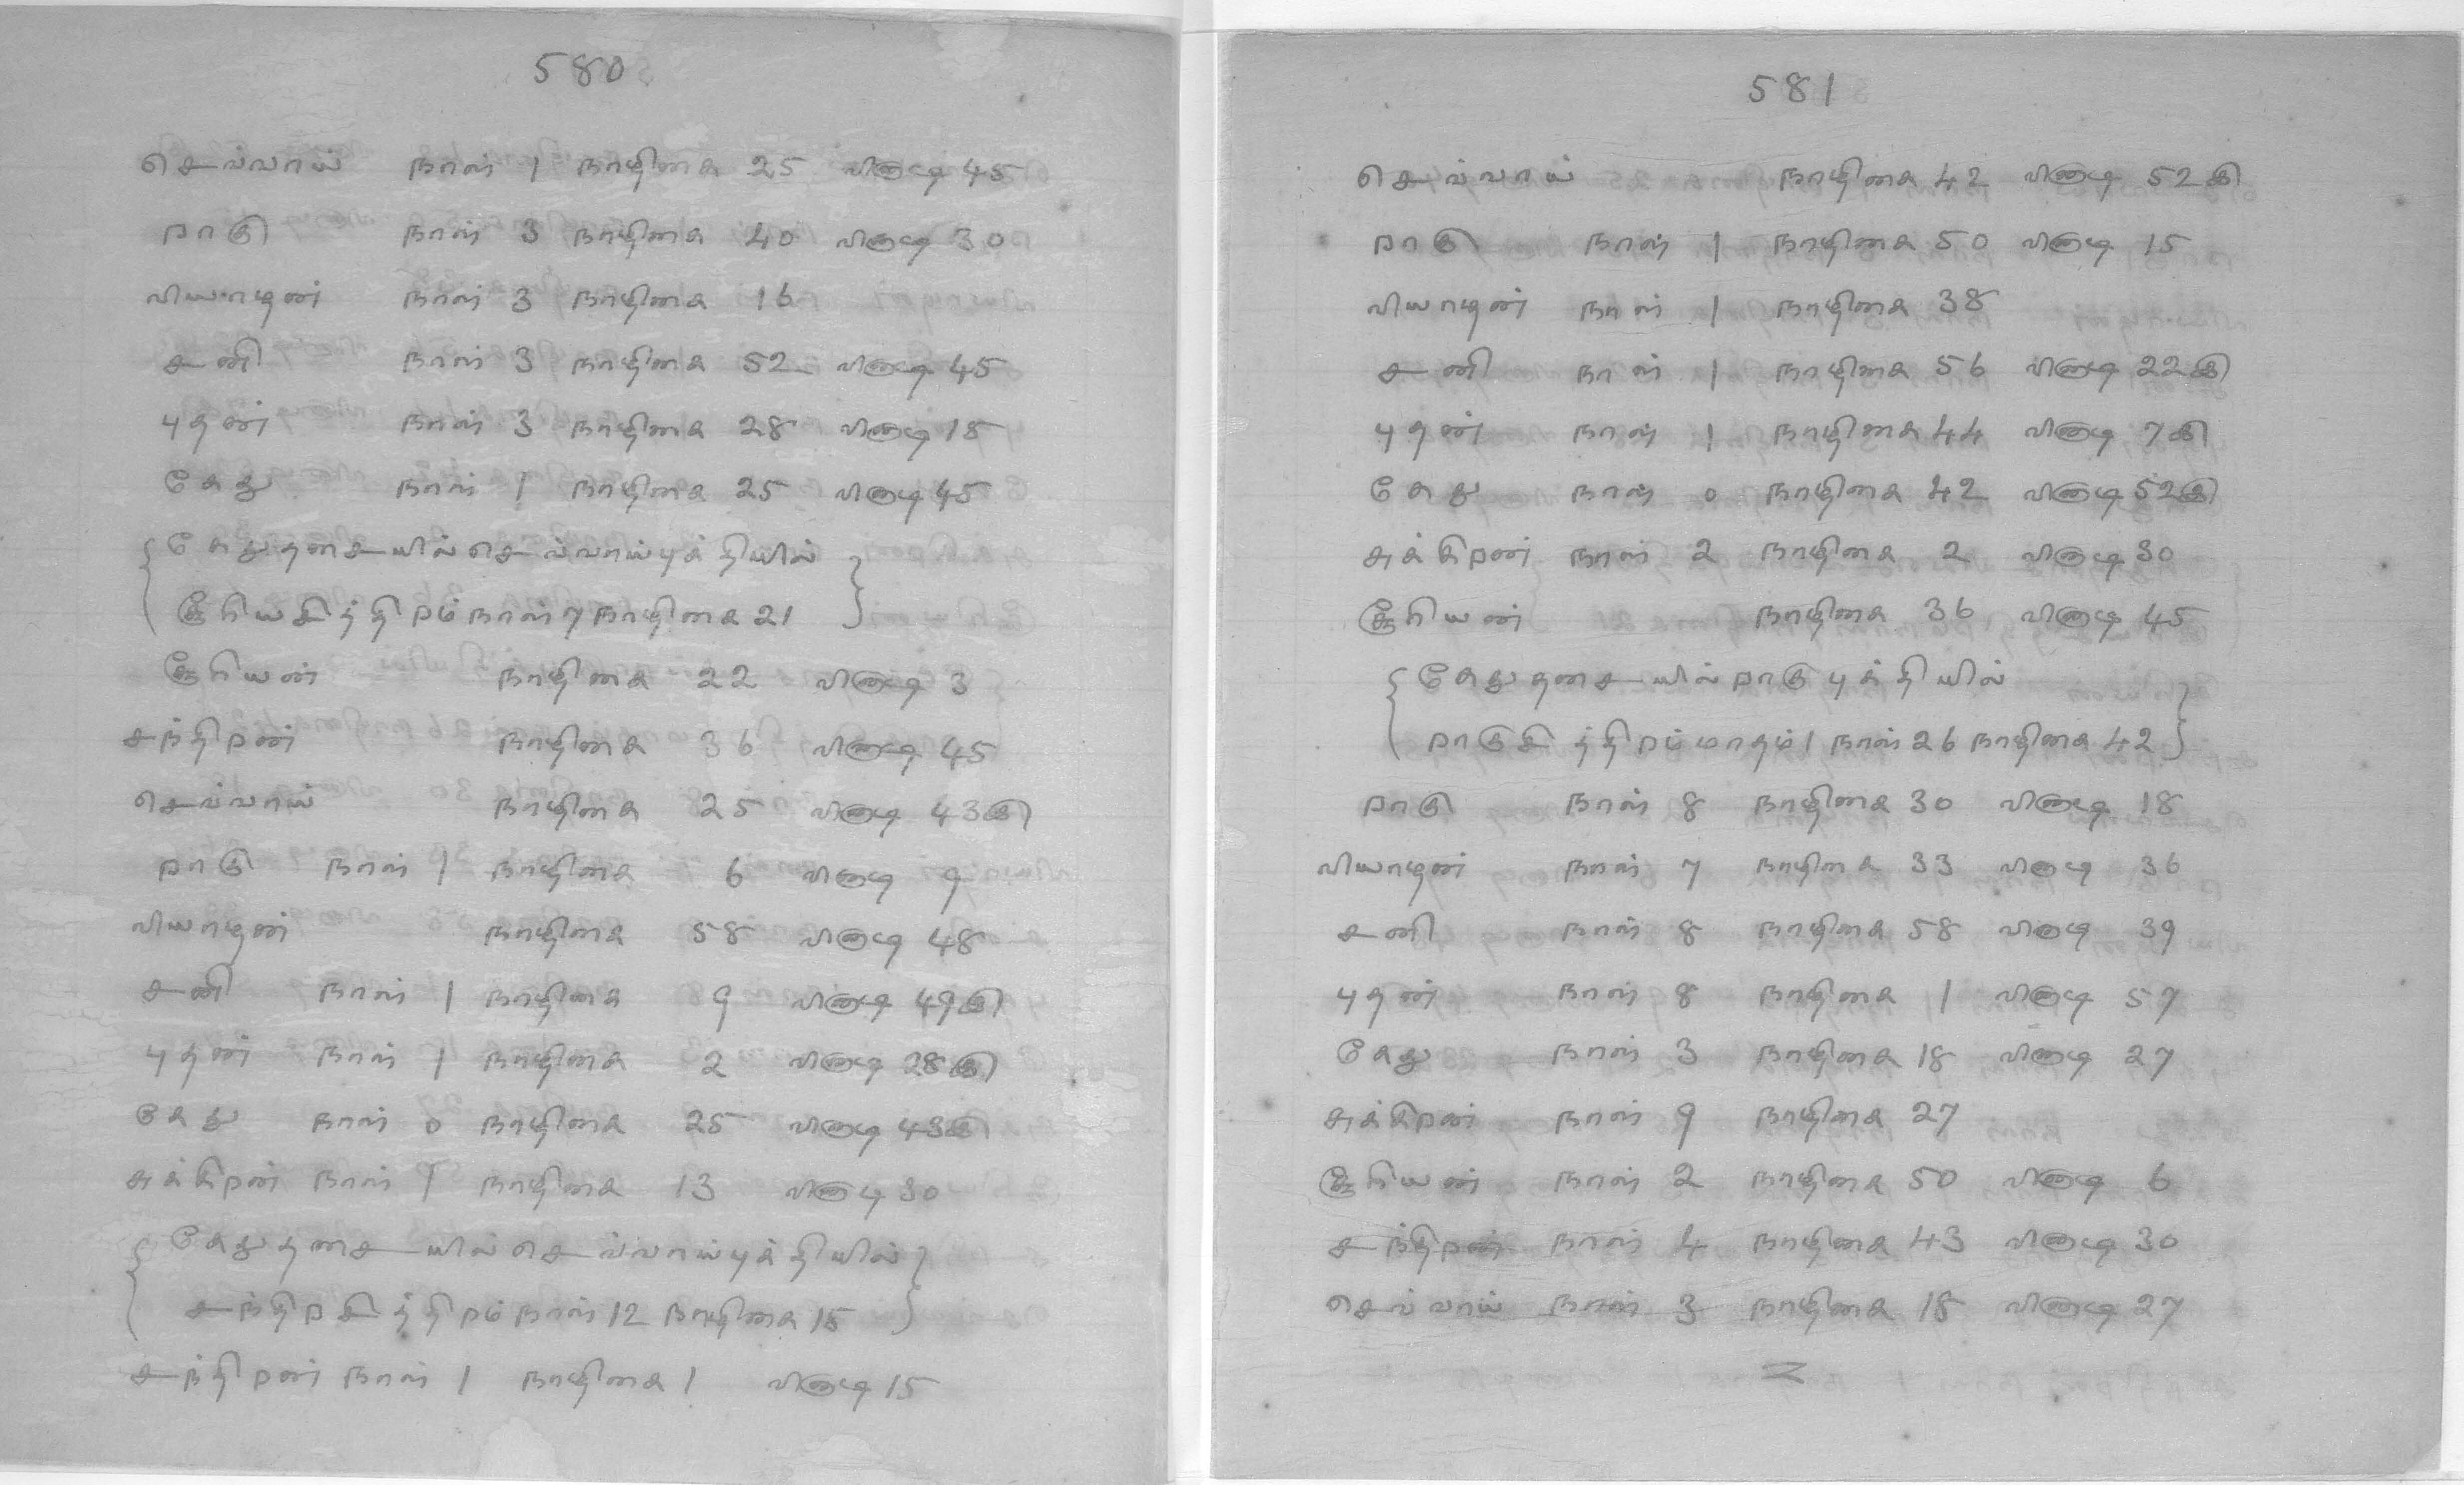 580
செவ்வாய் நாள் 1 நாழிகை 25 விநாடி 45
ராகு நாள் 3 நாழிகை 40 விநாடி 30
வியாழன் நாள் 3 நாழிகை 16
சனி நாள் 3 நாழிகை 52 விநாடி 45
புதன் நாள் 3 நாழிகை 28 விநாடி 15
கேது நாள் 1 நாழிகை 25 விநாடி 45
{ கேதுதசையில் செவ்வாய்புக்தியில்
சூரியசித்திரம் நாள் 7 நாழிகை 21 }
சூரியன் நாழிகை 22 விநாடி 3
சந்திரன் நாழிகை 36 விநாடி 45
செவ்வாய் நாழிகை 25 விநாடி 43இ
ராகு நாள் 1 நாழிகை 6 விநாடி 9
வியாழன் நாழிகை 58 விநாடி 48
சனி நாள் 1 நாழிகை 9 விநாடி 49இ
புதன் நாள் 1 நாழிகை 2 விநாடி 28இ
கேது நாள் 0 நாழிகை 25 விநாடி 43இ
சுக்கிரன் நாள் 1 நாழிகை 13 விநாடி 30
{ கேதுதசையில் செவ்வாய்புக்தியில்
சந்திரசித்திரம் நாள் 12 நாழிகை 15 }
சந்திரன் நாள் 1 நாழிகை 1 விநாடி 15
581
செவ்வாய் நாழிகை 42 விநாடி 52இ
ராகு நாள் 1 நாழிகை 50 விநாடி 15
வியாழன் நாள் 1 நாழிகை 38
சனி நாள் 1 நாழிகை 56 விநாடி 22இ
புதன் நாள் 1 நாழிகை 44 விநாடி 7இ
கேது நாள் 0 நாழிகை 42 விநாடி 52இ
சுக்கிரன் நாள் 2 நாழிகை 2 விநாடி 30
சூரியன் நாழிகை 36 விநாடி 45
{ கேதுதசையில் ராகுபுக்தியில்
ராகுசித்திரம் மாதம் 1 நாள் 26 நாழிகை 42 }
ராகு நாள் 8 நாழிகை 30 விநாடி 18
வியாழன் நாள் 7 நாழிகை 33 விநாடி 36
சனி நாள் 8 நாழிகை 58 விநாடி 39
புதன் நாள் 8 நாழிகை 1 விநாடி 57
கேது நாள் 3 நாழிகை 18 விநாடி 27
சுக்கிரன் நாள் 9 நாழிகை 27
சூரியன் நாள் 2 நாழிகை 50 விநாடி 6
சந்திரன் நாள் 4 நாழிகை 43 விநாடி 30
செவ்வாய் நாள் 3 நாழிகை 18 விநாடி 27